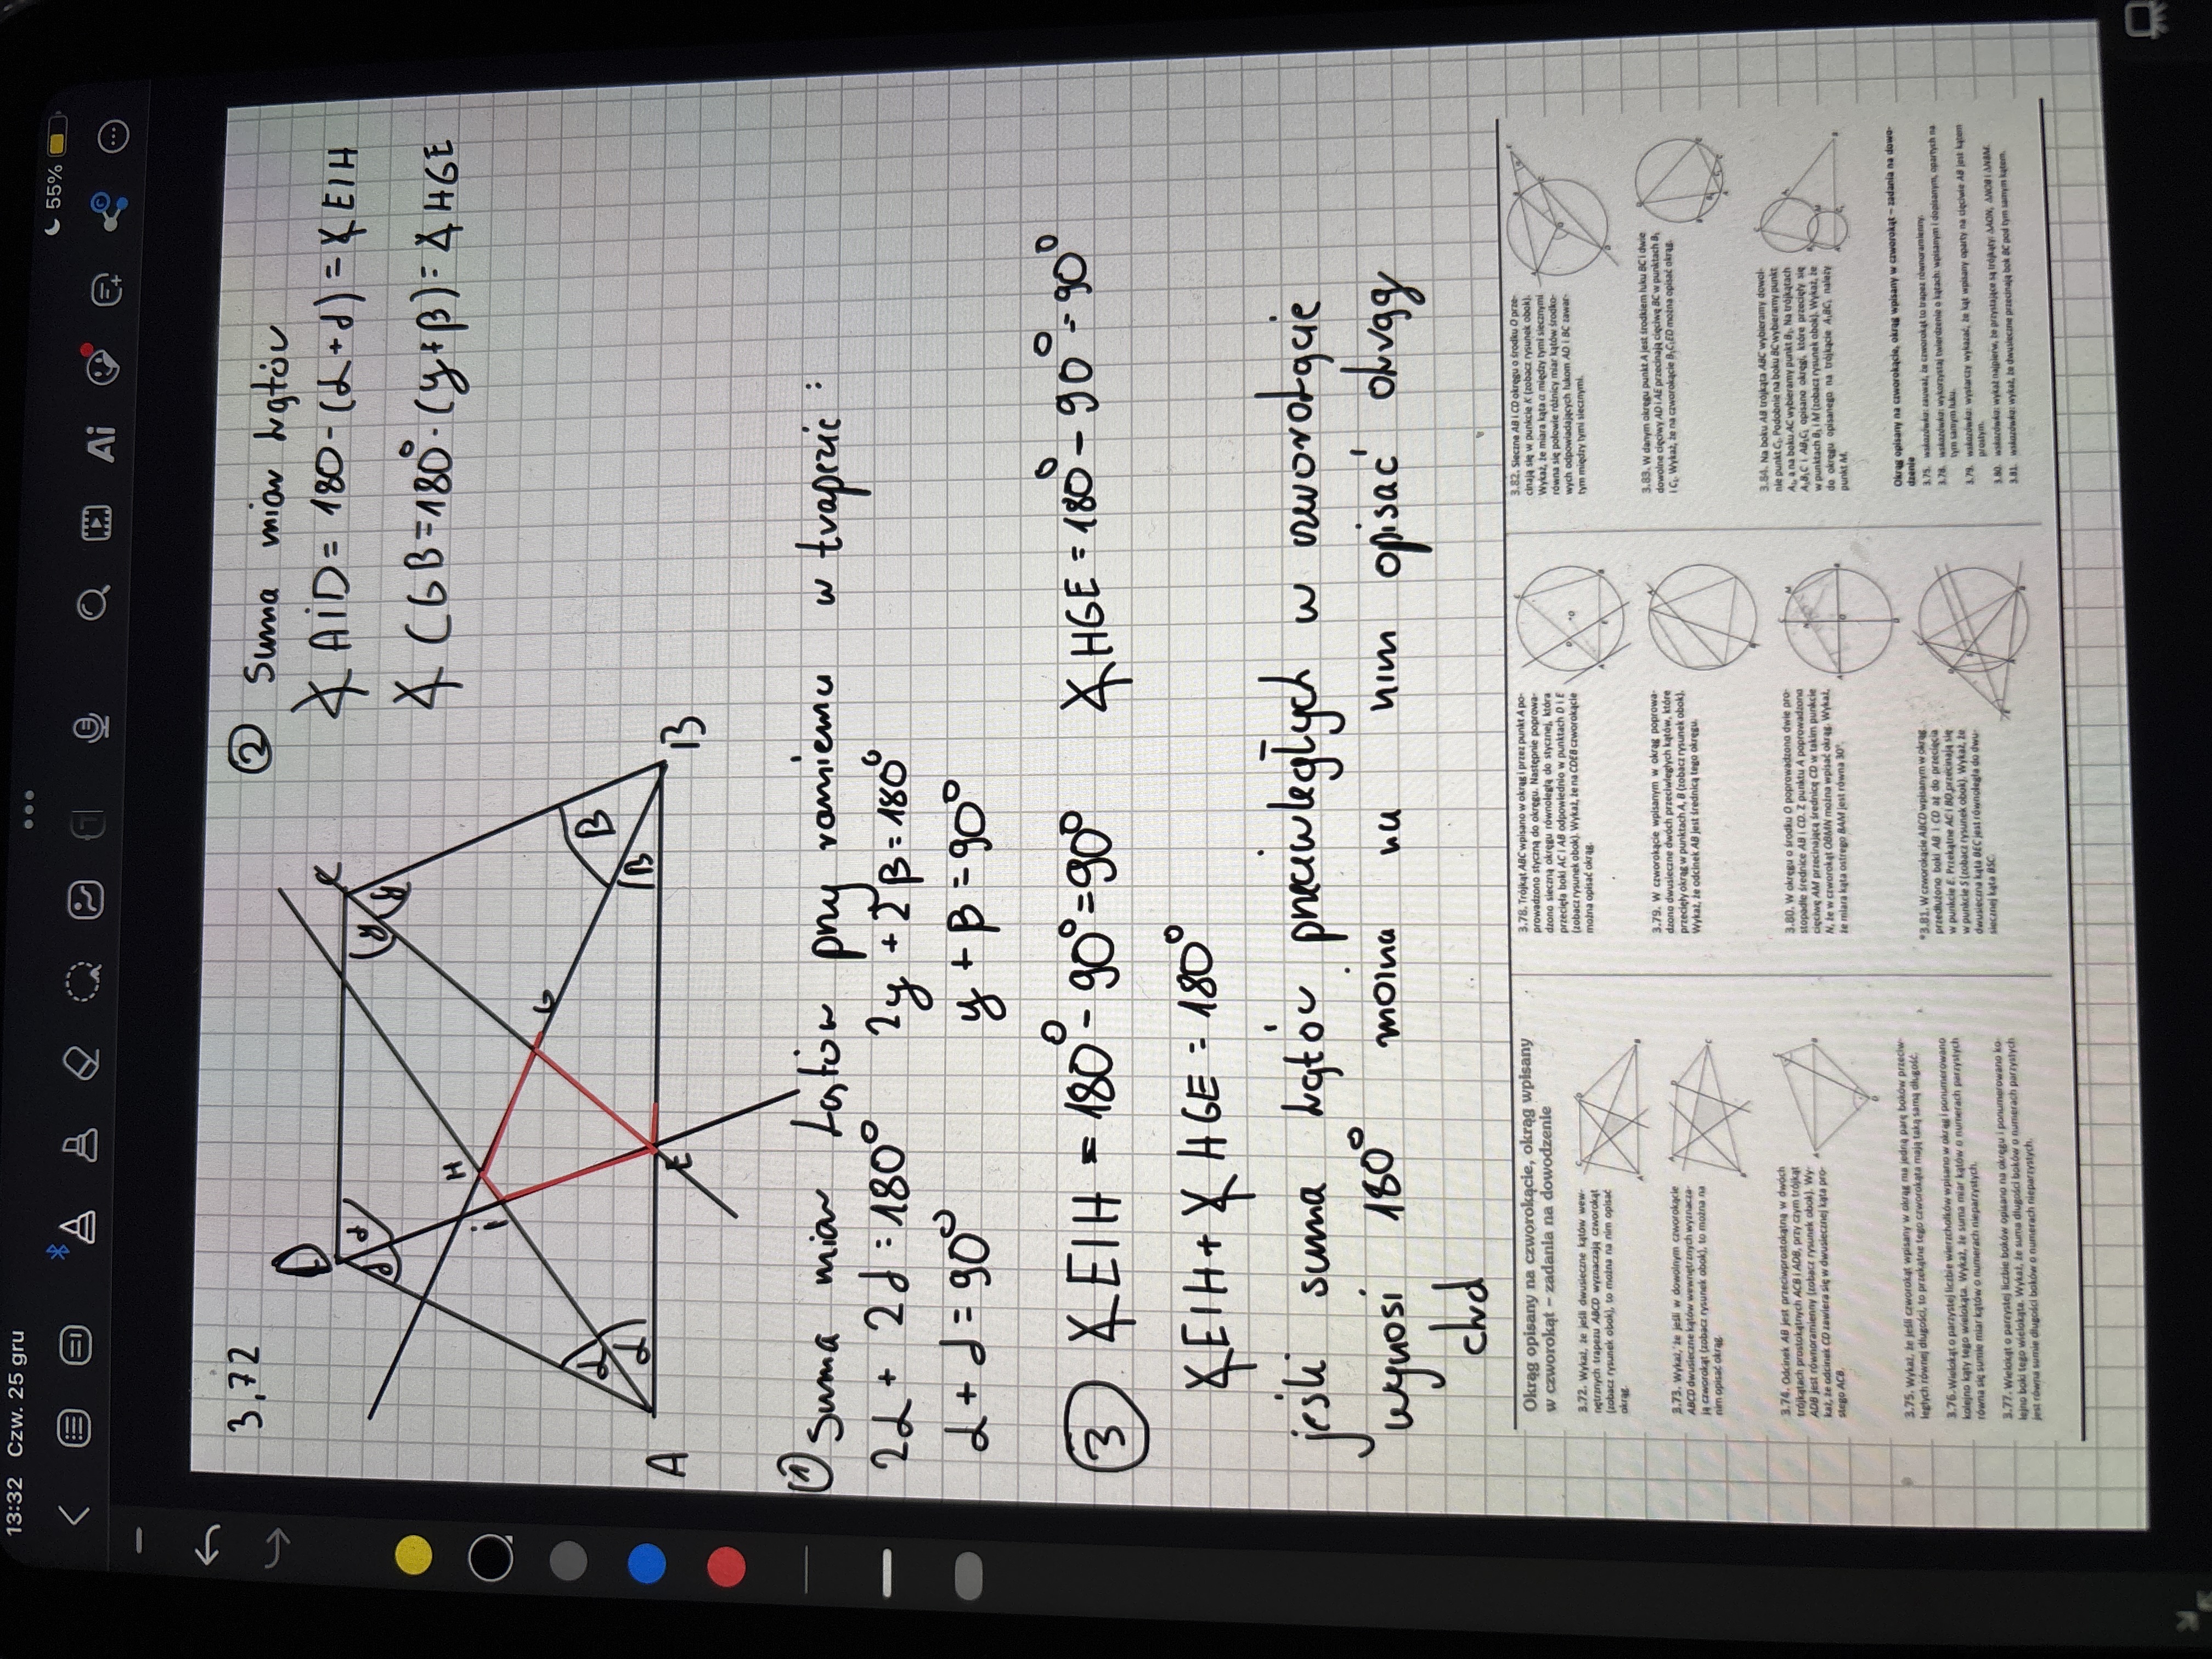 13:32 Czw. 25 gru
55%
Ai
3,72
D
C
H
G
i
E
A
B
α
α
δ
δ
y
y
β
β
② Suma miar kątów
∡ AiD = 180 - (α + δ) = ∡ EIH
∡ CGB = 180° - (y + β) = ∡ HGE
① Suma miar kątów przy ramieniu w trapezie :
2α + 2δ = 180°
2y + 2β = 180°
α + δ = 90°
y + β = 90°
③ ∡ EIH = 180° - 90° = 90°
∡ HGE = 180° - 90° = 90°
∡ EIH + ∡ HGE = 180°
jeśli suma kątów przeciwległych w czworokącie
wynosi 180° można na nim opisać okrąg
cknd
Okrąg opisany na czworokącie, okrąg wpisany
w czworokąt – zadania na dowodzenie
3.72. Wykaż, że jeśli dwusieczne kątów wew-
nętrznych trapezu ABCD wyznaczają czworokąt
(zobacz rysunek obok), to można na nim opisać
okrąg.
3.73. Wykaż, że jeśli w dowolnym czworokącie
ABCD dwusieczne kątów wewnętrznych wyznacza-
ją czworokąt (zobacz rysunek obok), to można na
nim opisać okrąg.
3.74. Odcinek AB jest przeciwprostokątną w dwóch
trójkątach prostokątnych ACB i ADB, przy czym trójkąt
ADB jest równoramienny (zobacz rysunek obok). Wy-
każ, że odcinek CD zawiera się w dwusiecznej kąta pro-
stego ACB.
3.75. Wykaż, że jeśli czworokąt wpisany w okrąg ma jedną parę boków przeciw-
ległych równej długości, to przekątne tego czworokąta mają taką samą długość.
3.76. Wielokąt o parzystej liczbie wierzchołków wpisano w okrąg i ponumerowano
kolejno kąty tego wielokąta. Wykaż, że suma miar kątów o numerach parzystych
równa się sumie miar kątów o numerach nieparzystych.
3.77. Wielokąt o parzystej liczbie boków opisano na okręgu i ponumerowano ko-
lejno boki tego wielokąta. Wykaż, że suma długości boków o numerach parzystych
jest równa sumie długości boków o numerach nieparzystych.
3.78. Trójkąt ABC wpisano w okrąg i przez punkt A po-
prowadzono styczną do okręgu. Następnie poprowa-
dzono sieczną okręgu równoległą do stycznej, która
przecięła boki AC i AB odpowiednio w punktach D i E
(zobacz rysunek obok). Wykaż, że na CDEB czworokącie
można opisać okrąg.
3.79. W czworokącie wpisanym w okrąg poprowa-
dzono dwusieczne dwóch przeciwległych kątów, które
przecięły okrąg w punktach A, B (zobacz rysunek obok).
Wykaż, że odcinek AB jest średnicą tego okręgu.
3.80. W okręgu o środku O poprowadzono dwie pro-
stopadłe średnice AB i CD. Z punktu A poprowadzono
cięciwę AM przecinającą średnicę CD w takim punkcie
N, że w czworokąt OBMN można wpisać okrąg. Wykaż,
że miara kąta ostrego BAM jest równa 30°.
*3.81. W czworokącie ABCD wpisanym w okrąg
przedłużono boki AB i CD aż do przecięcia
w punkcie E. Przekątne AC i BD przecinają się
w punkcie S (zobacz rysunek obok). Wykaż, że
dwusieczna kąta BEC jest równoległa do dwu-
siecznej kąta BSC.
3.82. Sieczne AB i CD okręgu o środku O prze-
cinają się w punkcie K (zobacz rysunek obok).
Wykaż, że miara kąta α między tymi siecznymi
równa się połowie różnicy miar kątów środko-
wych odpowiadających łukom AD i BC zawar-
tym między tymi siecznymi.
3.83. W danym okręgu punkt A jest środkiem łuku BC i dwie
dowolne cięciwy AD i AE przecinają cięciwę BC w punktach B₁
i C₁. Wykaż, że na czworokącie B₁C₁ED można opisać okrąg.
3.84. Na boku AB trójkąta ABC wybieramy dowol-
nie punkt C₁. Podobnie na boku BC wybieramy punkt
A₁, a na boku AC wybieramy punkt B₁. Na trójkątach
A₁B₁C i AB₁C₁ opisano okręgi, które przecięły się
w punktach B₁ i M (zobacz rysunek obok). Wykaż, że
do okręgu opisanego na trójkącie A₁BC₁ należy
punkt M.
Okrąg opisany na czworokącie, okrąg wpisany w czworokąt – zadania na dowo-
dzenie
3.75. wskazówka: zauważ, że czworokąt to trapez równoramienny.
3.78. wskazówka: wykorzystaj twierdzenie o kątach: wpisanym i dopisanym, opartych na
tym samym łuku.
3.79. wskazówka: wystarczy wykazać, że kąt wpisany oparty na cięciwie AB jest kątem
prostym.
3.80. wskazówka: wykaż najpierw, że przystające są trójkąty: ΔAON, ΔNOB i ΔNBM.
3.81. wskazówka: wykaż, że dwusieczne przecinają bok BC pod tym samym kątem.